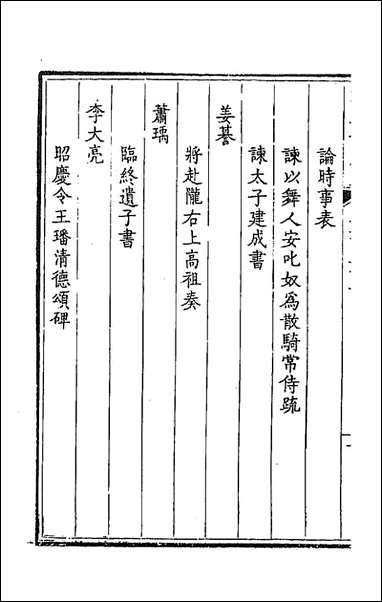 論時事表
諫以舞人安叱奴為散騎常侍疏
諫太子建成書
姜謩
將赴隴右上高祖奏
蕭瑀
臨終遺子書
李大亮
昭慶令王璠清德頌碑